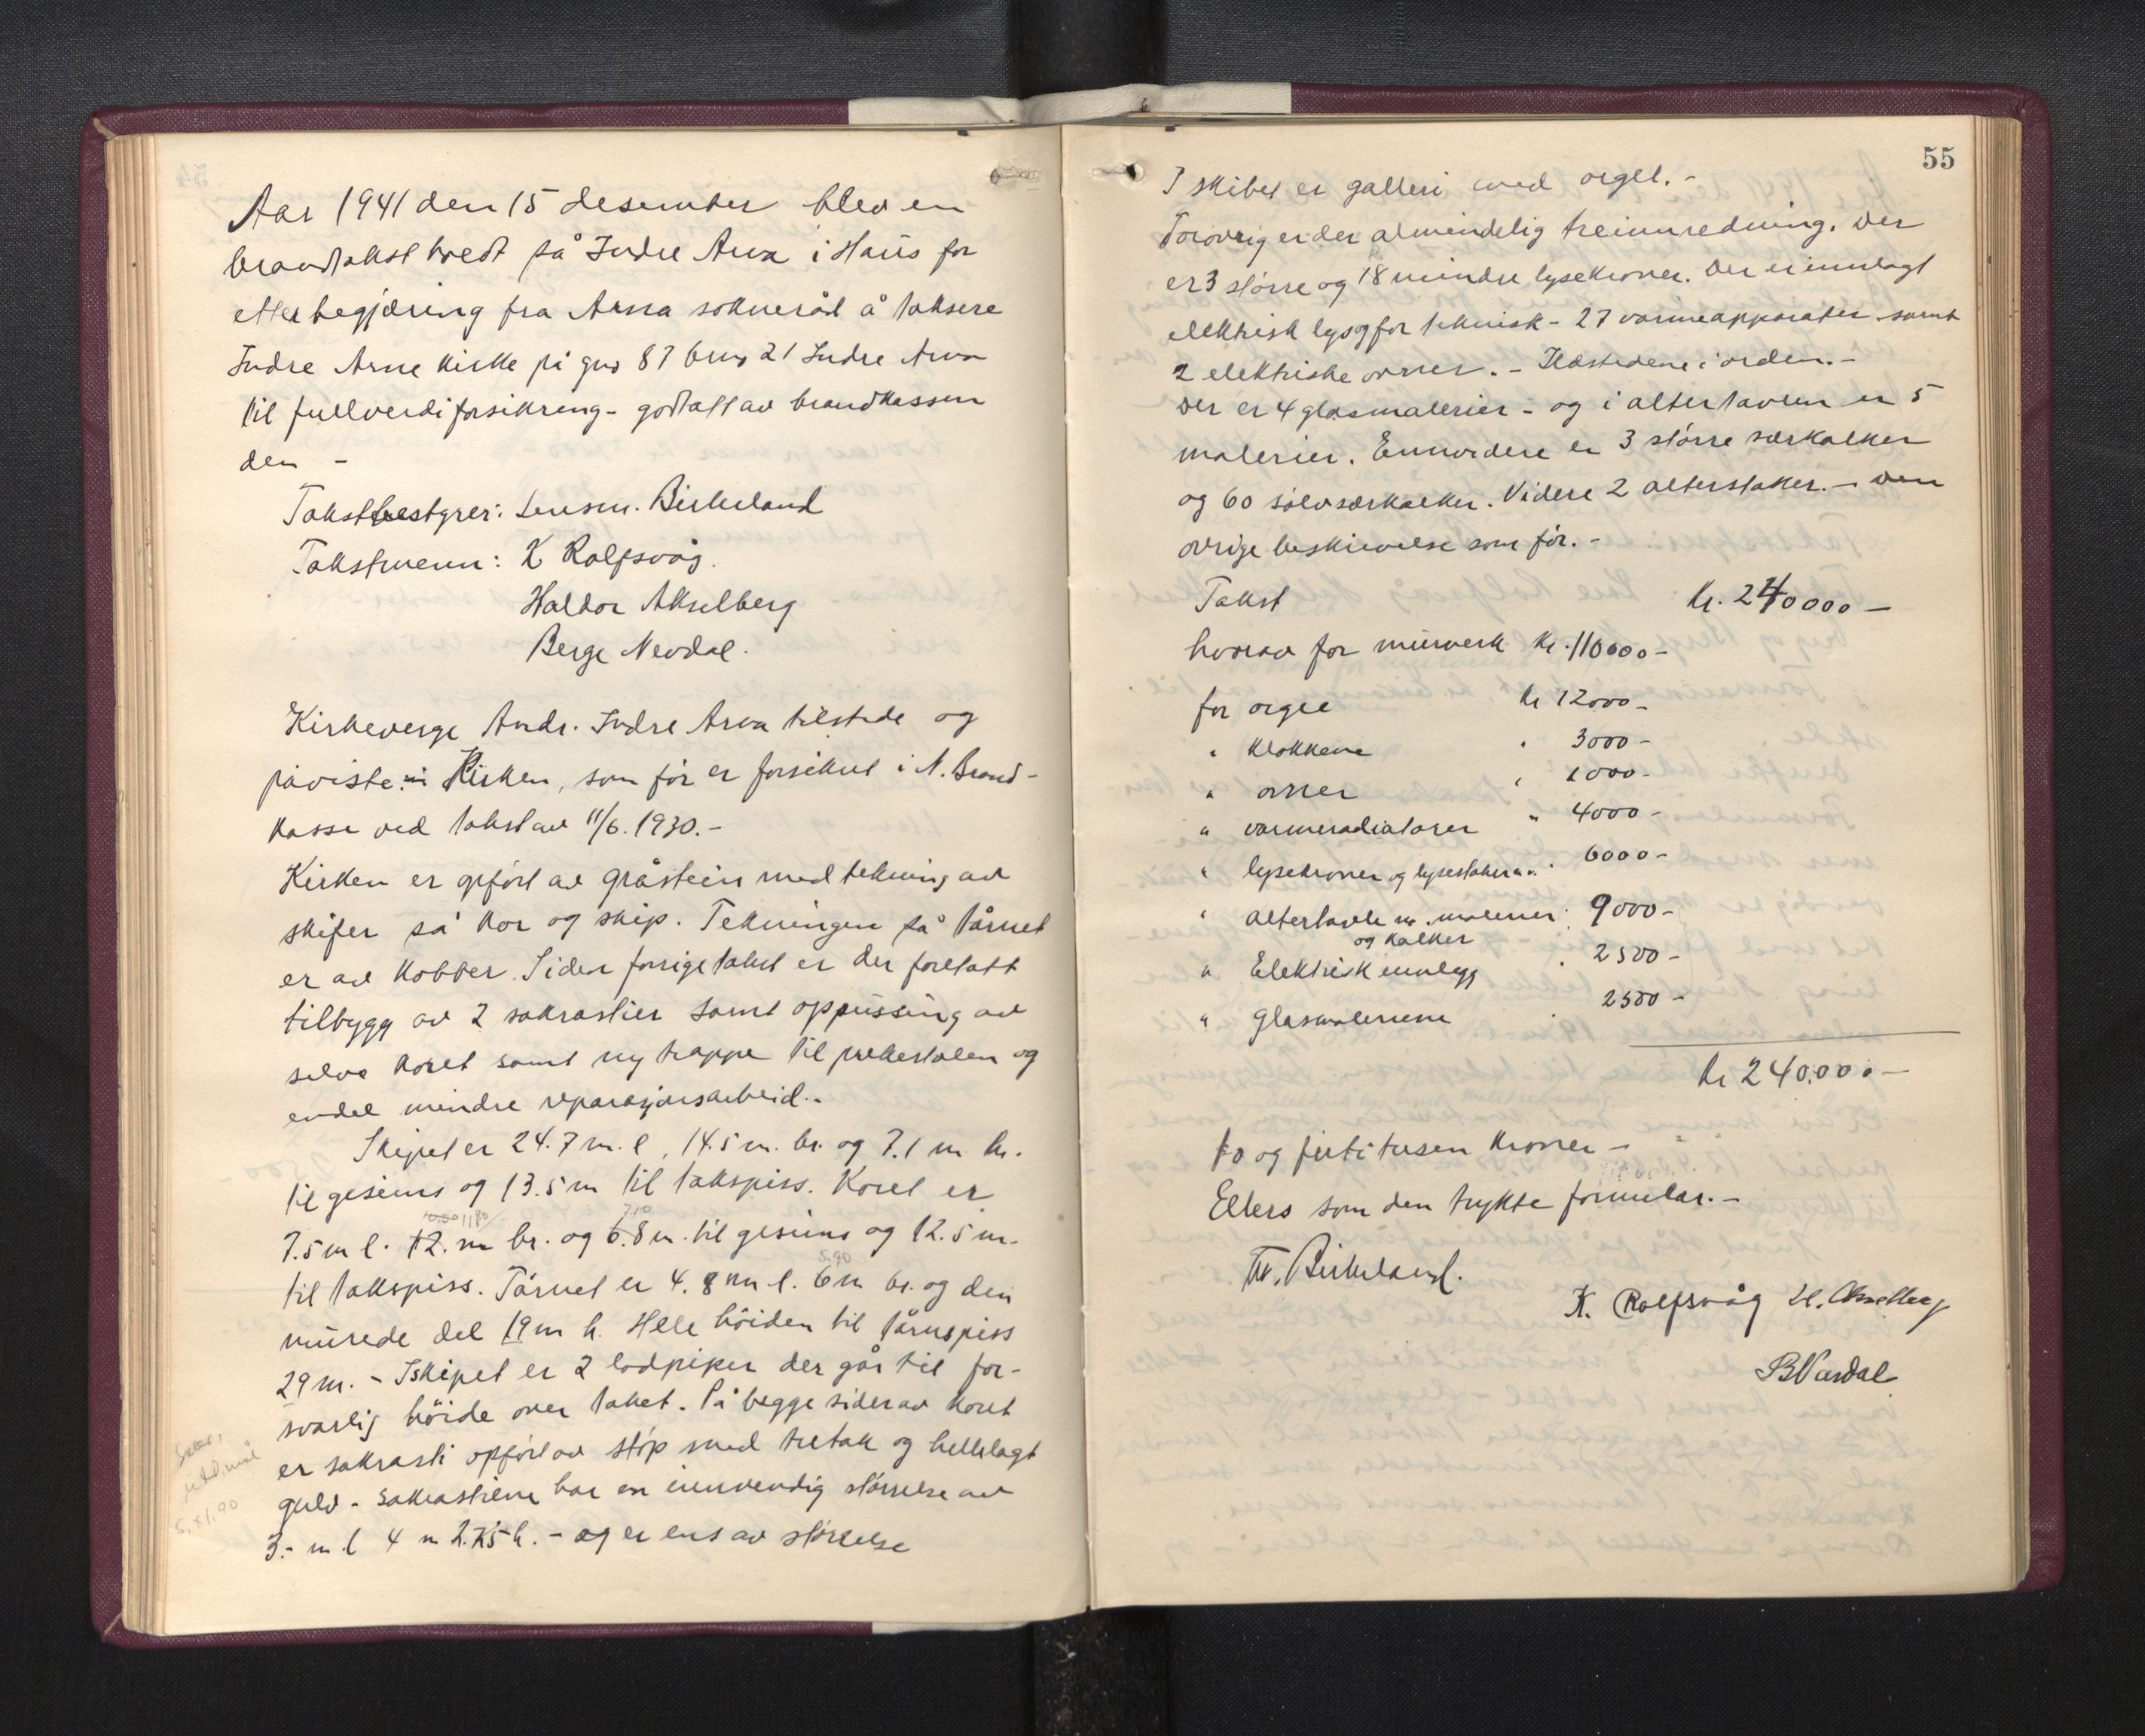 Aar 1941 den 15 desember blev en
brandtakst holdt på Indre Arna i Haus for
etter begjæring fra Arna sokneråd å taksere
Indre Arne kirke på gno 87 bno 21 Indre Arna
til fullverdiforsikring - godtatt av brandkassen
den -
Takstbestyrer: Lensm. Birkeland
Takstmenn: K Rolfsvåg.
Haldor Akselberg
Berge Nevdal.
Kirkeverge Andr. Indre Arna tilstede og
påviste Kirken, som før er forsikret i N. Brand-
kasse ved takst av 11/6. 1930. -
Kirken er opført av gråstein med tekning av
skifer på kor og skip. Tekningen på tårnet
er av kobber. Siden forrige takst er der foretatt
tilbygg av 2 sakrastier samt oppussing av
selve koret samt ny trappe til prekestolen og
endel mindre reparasjonsarbeid. -
Skipet er 24.7 m. l, 14.5 m. br. og 7.1 m h.
til gesims og 13.5 m til takspiss. Koret er
10.50 11,80 7.10
7.5 m l. 12. m br. og 6.8 m. til gesims og 12.5 m.
5.90
til takspiss. Tårnet er 4.8 m l. 6 m br. og den
murede del 19 m h. Hele höiden til tårnspiss
29 m. - I skipet er 2 lodpiper der går til for-
svarlig höide over taket. På begge sider av koret
er sakrasti opført av støp med tretak og hellelagt
gulv. - Sakrastiene har en innvendig størrelse av
5. x 1.90
3. - m l 4 m 2.75 h. - og er ens av størrelse
55
I skibet er galleri med orgel. -
Forøvrig er der almindelig treinnredning. Der
er 3 større og 18 mindre lysekroner. Der er innlagt
elektrisk lys og for teknisk - 27 varmeapparater samt
2 elektriske ovner. - Ildstedene i orden. -
Der er 4 glasmalerier - og i altertavlen er 5
malerier. Ennvidere er 3 større særkalker
og 60 sølvsærkalker. Videre 2 alterstaker. - Den
øvrige beskrivelse som før. -
Takst Kr. 240000 -
hvorav for murverk Kr. 110000 -
for orgel kr 12000 -
" klokkene " 3000 -
" ovner " 1000 -
" varmeradiatorer " 4000 -
" lysekroner og lysestakene " 6000 -
" altertavle m. malerier " 9000 -
og kalker
" Elektrisk innlegg " 2500 -
" glasmaleriene " 2500 -
kr 240.000 -
to og firti tusen kroner -
Ellers som den trykte formular. -
Birkeland.
K. Rolfsvåg H. Akselberg
B Nevdal